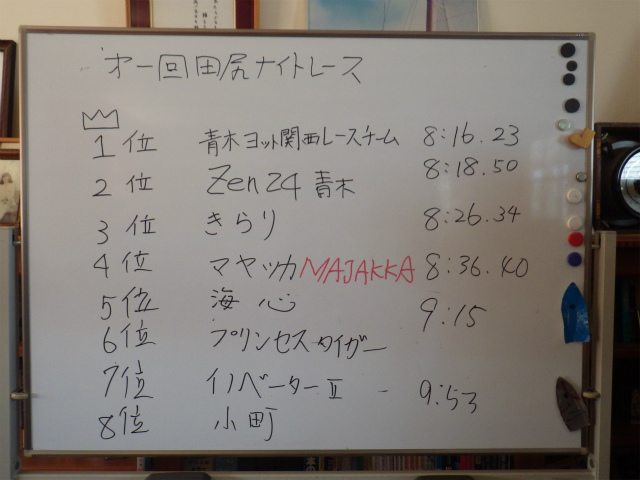 才一回田尻ナイトレース
1位 青木ヨット関西レースチーム 8:16.23
2位 Zen24 青木 8:18.50
3位 きらり 8:26.34
4位 マヤッカ MAJAKKA 8:36.40
5位 海心 9:15
6位 プリンセスタイガー
7位 イノベーターⅡ - 9:53
8位 小町